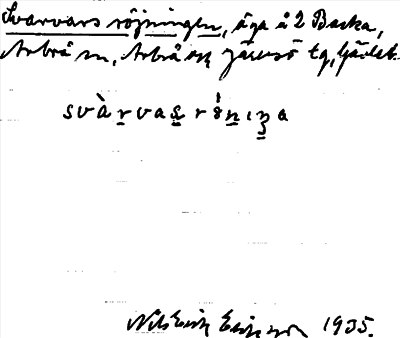 Svarvars röjningen, äga å 2 Backa,
Arbrå sn, Arbrå och Järvsö tg, Gävleb.
svàrvas̠ rö́nıŋa
Nils Erik Eriksson 1935.